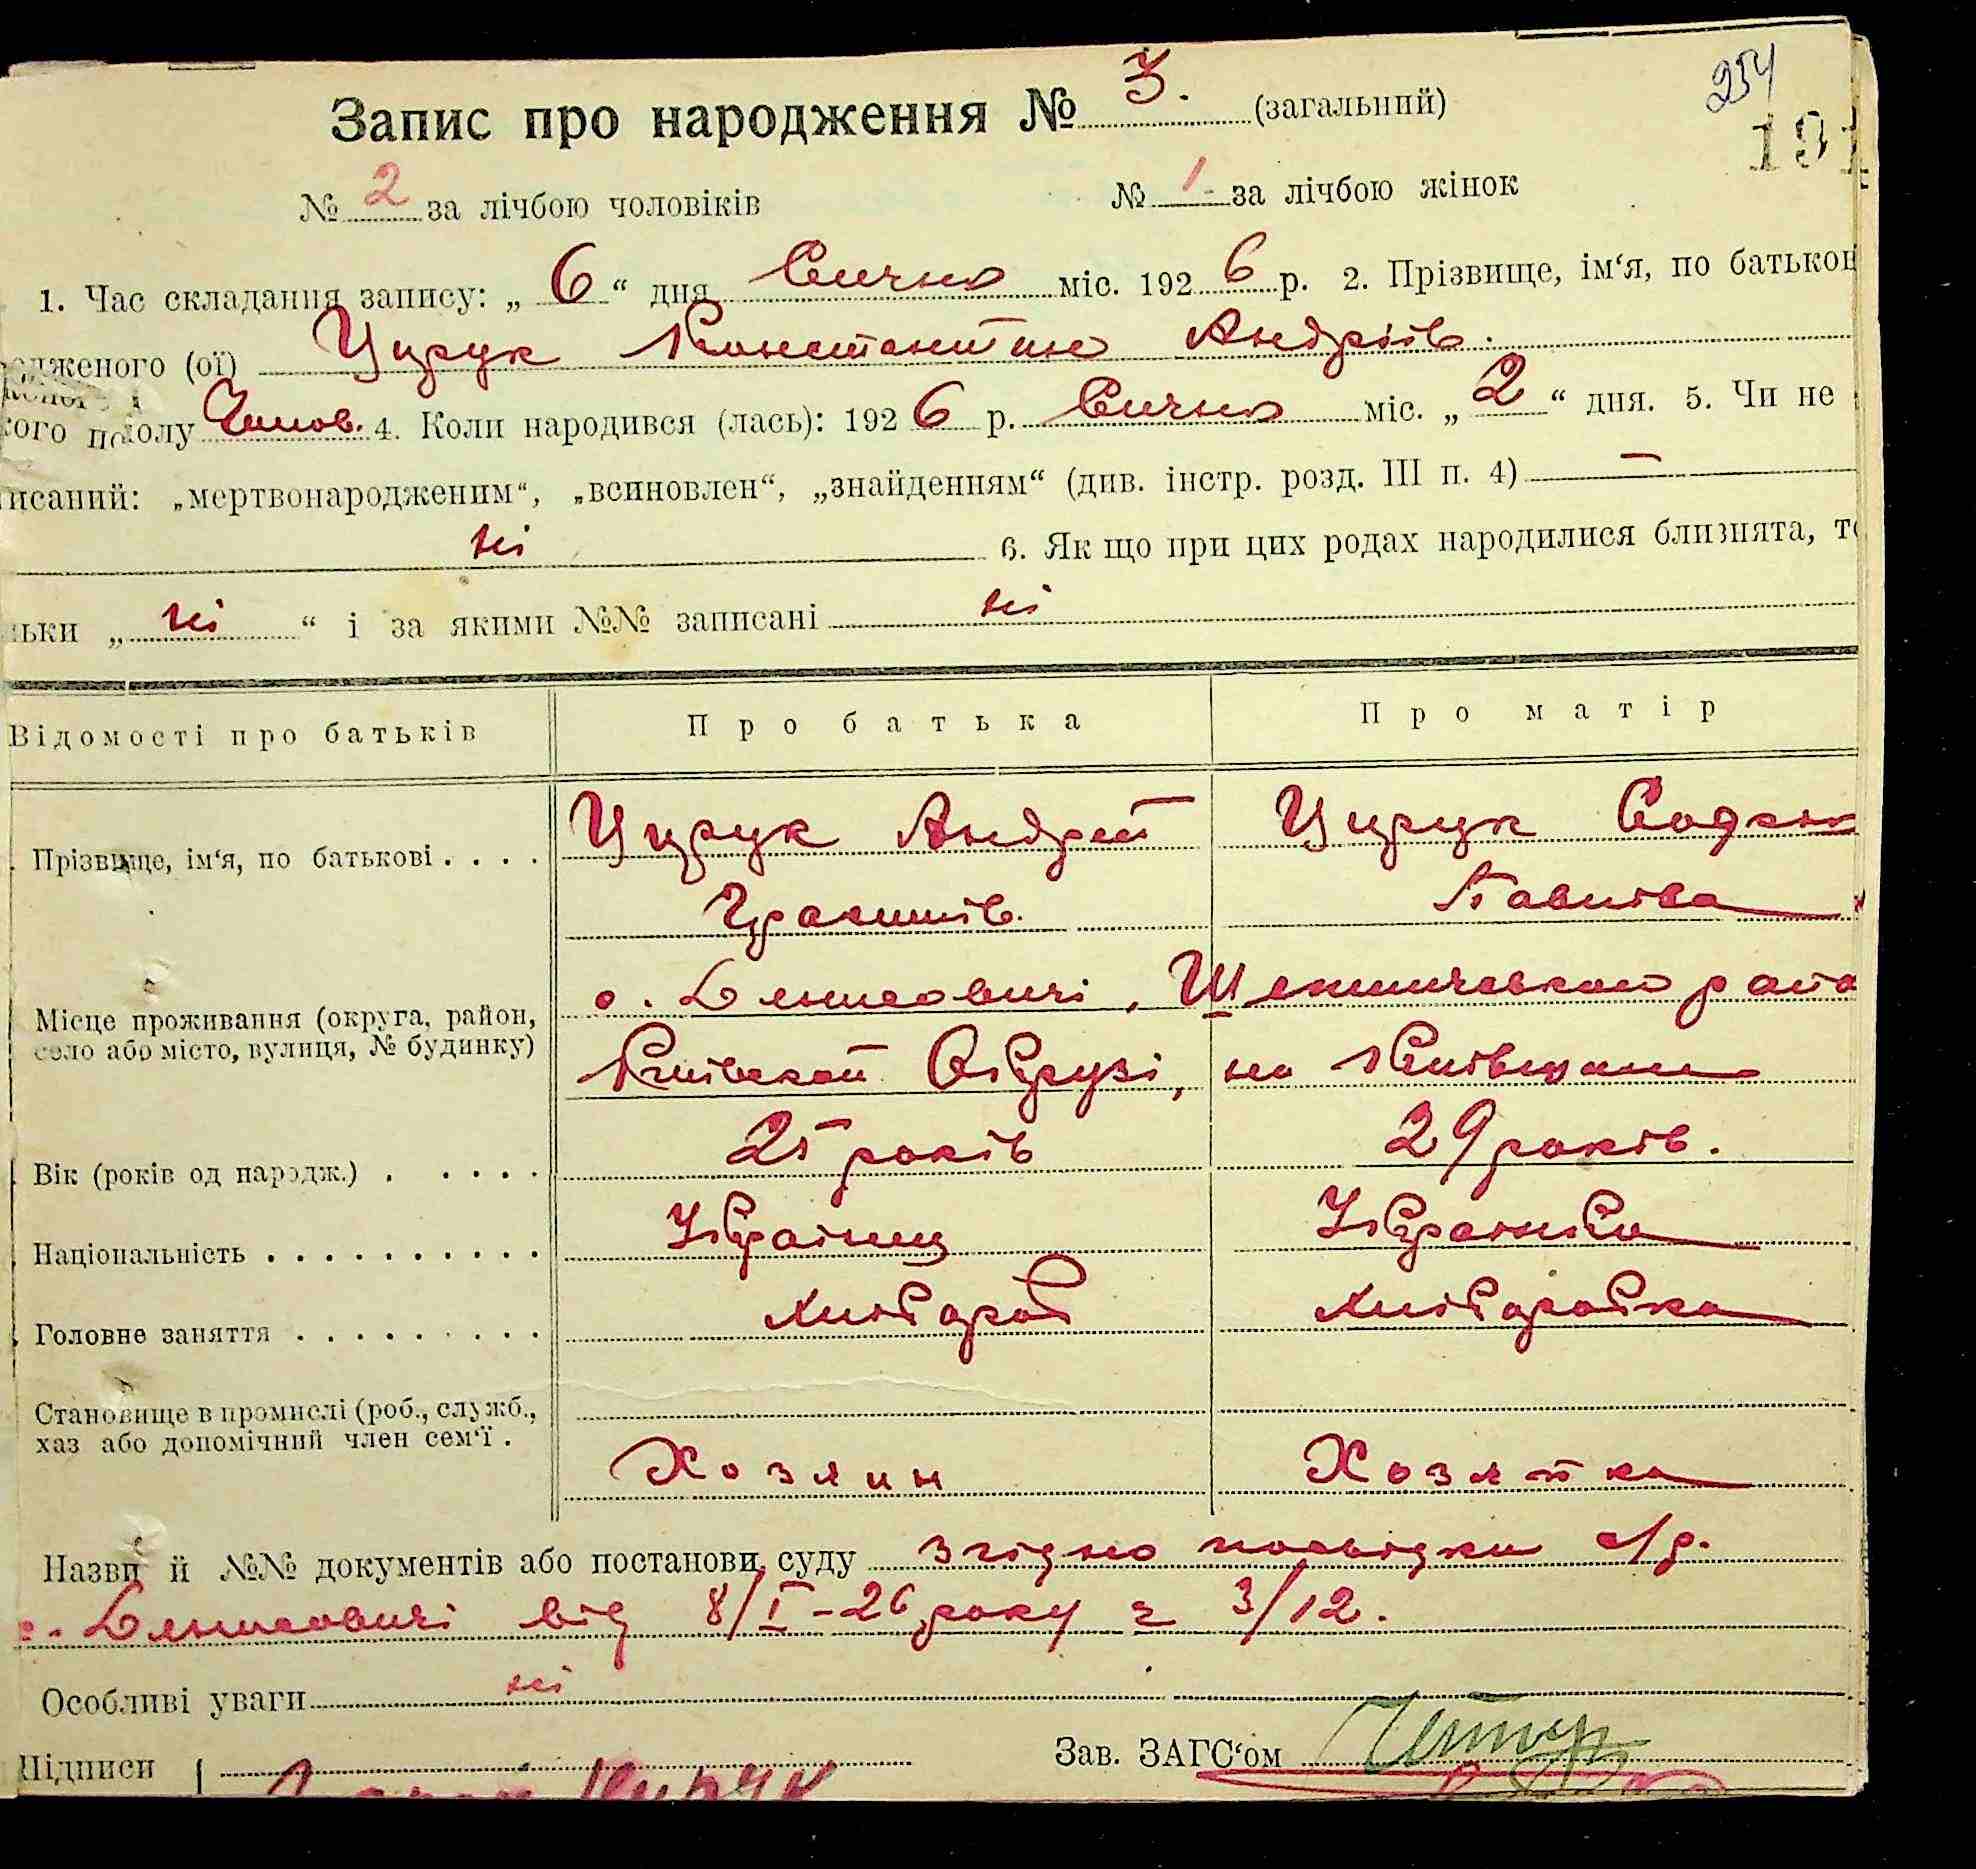 254
191
Запис про народження № 3. (загальний)
№ 2 за лічбою чоловіків № 1 за лічбою жінок
1. Час складання запису: „ 6 “ дня Січня міс. 192 6 р. 2. Прізвище, ім‘я, по батькові
родженого (ої) Цурук Константин Андріїв.
кого полу Чолов. 4. Коли народився (лась): 192 6 р. Січня міс. „ 2 “ дня. 5. Чи не
писаний: „мертвонародженим“, „всиновлен“, „знайденням“ (див. інстр. розд. III п. 4) —
ні 6. Як що при цих родах народилися близнята, то
льки „ ні “ і за якими №№ записані ні
Відомості про батьків Про батька Про матір
Прізвище, ім‘я, по батькові . . . . Цурук Андрей Цурук Софія
Павлова
Місце проживання (округа, район, село або місто, вулиця, № будинку)
району
Київской Окрузі, на Київщині
Вік (років од народж.) . . . . . 25 років 29 років.
Національність . . . . . . . . . . Українец Українка
Головне заняття . . . . . . . . . Хлібороб Хліборобка
Становище в промислі (роб., служб., хаз або допомічний член сем‘ї . Хозяин Хозяйка
Назви й №№ документів або постанови суду згідно посвідки с/р.
від 8/I-26 року з 3/12.
Особливі уваги ні
Підписи Зав. ЗАГС‘ом